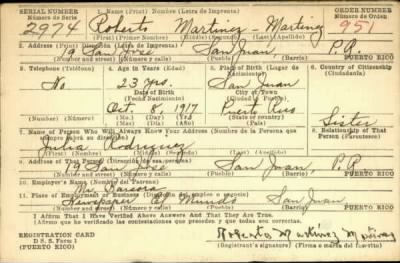 SERIAL NUMBER 1. Name (Print) Nombre (Letra de Imprenta) ORDER NUMBER
Número de Serie Número de Orden
2974 Roberto Martinez Martinez 951
(First) (Primer Nombre) (Middle) (Segundo Nombre) (Last) (Apellido)
2. Address (Print) Dirección (Letra de Imprenta)
9 San José San Juan P.R.
(Number and street) (Número y calle) (Town) (Pueblo) PUERTO RICO
3. Telephone (Teléfono) 4. Age in Years (Edad) 5. Place of Birth (Lugar de Nacimiento) 6. Country of Citizenship (Ciudadanía)
No 23 yrs. San Juan
Date of Birth (Fecha Nacimiento) City or Town (Ciudad o Pueblo)
Oct 8, 1917 Puerto Rico
(Mo.) (Mes) (Day) (Día) (Yr.) (Año) State or country (País)
7. Name of Person Who Will Always Know Your Address (Nombre de la Persona que siempre sepa su dirección) 8. Relationship of That Person (Parentesco)
Julia Rodriguez Sister
9. Address of That Person (Dirección de esa persona)
9 San José San Juan, P.R.
(Number and street) (Número y calle) (Town) (Pueblo) PUERTO RICO
10. Employer's Name (Nombre del Patrono)
Mr.
11. Place of Employment or Business (Dirección del empleo o negocio)
Newspaper El Mundo San Juan
(Number and street) (Número y calle) (Town) (Pueblo) PUERTO RICO
I Affirm That I Have Verified Above Answers And That They Are True.
(Afirmo que he verificado las contestaciones que preceden, y que todas son correctas).
REGISTRATION CARD Roberto Martinez Martinez
D S. S. Form 1 (Registrant's signature) (Firma o marca del inscrito)
(PUERTO RICO)